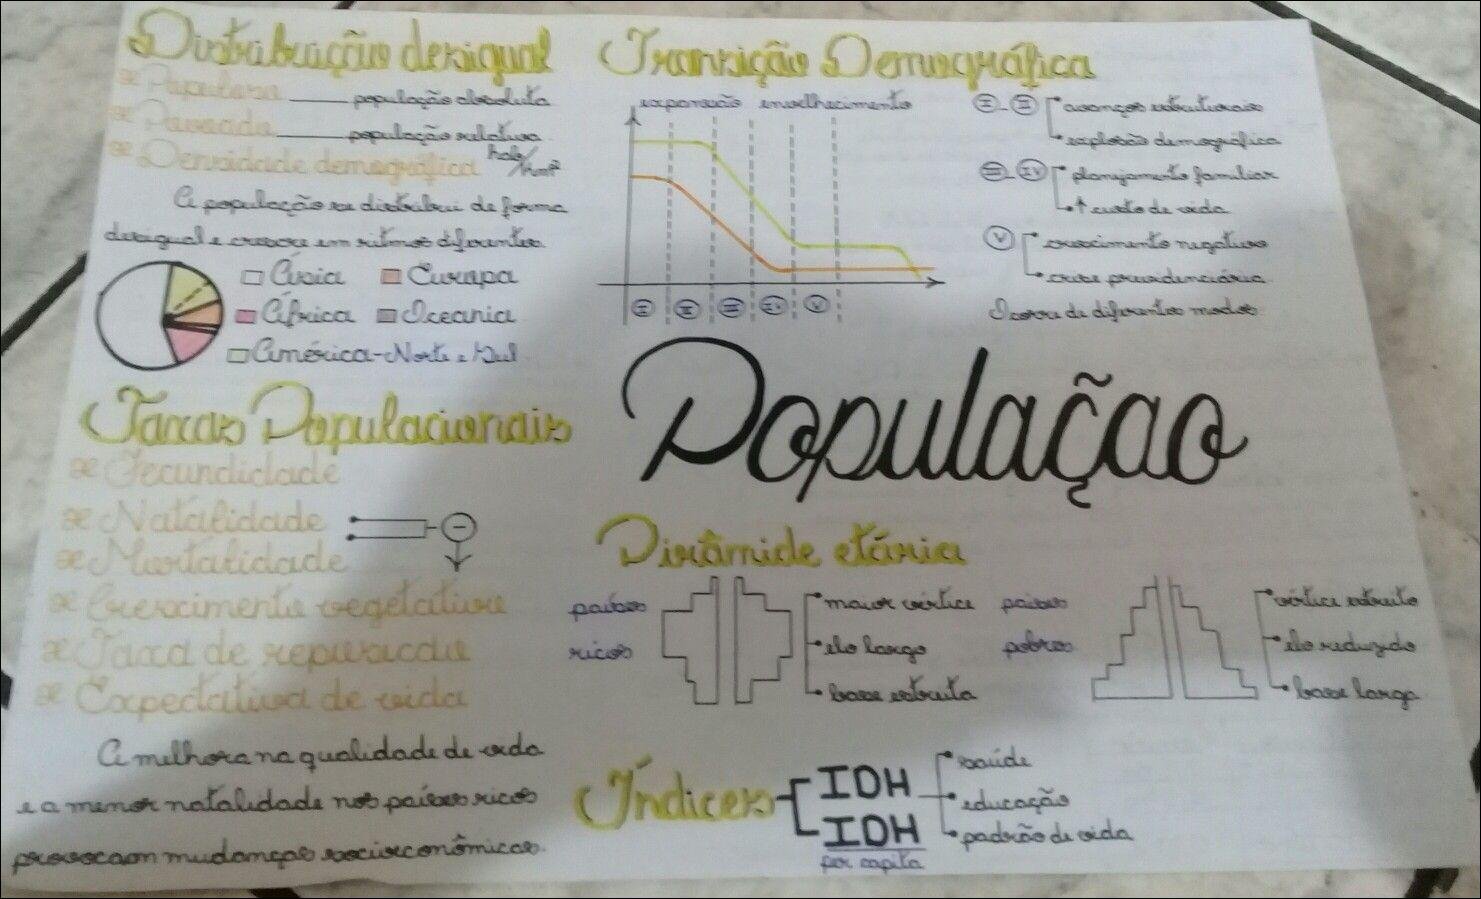 Distribuição desigual
Populoso população absoluta
Povoado população relativa
Densidade demográfica hab/km²
A população se distribui de forma
desigual e cresce em ritmos diferentes.
Ásia Europa
África Oceania
América-Norte e Sul
Taxas Populacionais
Fecundidade
Natalidade
Mortalidade
Crescimento vegetativo
Taxa de reposição
Expectativa de vida
A melhora na qualidade de vida
e a menor natalidade nos países ricos
provocam mudanças socioeconômicas.
Transição Demográfica
expansão envelhecimento
I II III IV V
I - II avanços estruturais
explosão demográfica
III - IV planejamento familiar
↑ custo de vida
V crescimento negativo
crise previdenciária
Ocorre de diferentes modos
População
Pirâmide etária
países
ricos
maior vértice
elo largo
base estreita
países
pobres
vértice estreito
elo reduzido
base larga
Índices
IDH
IDH
per capita
saúde
educação
padrão de vida